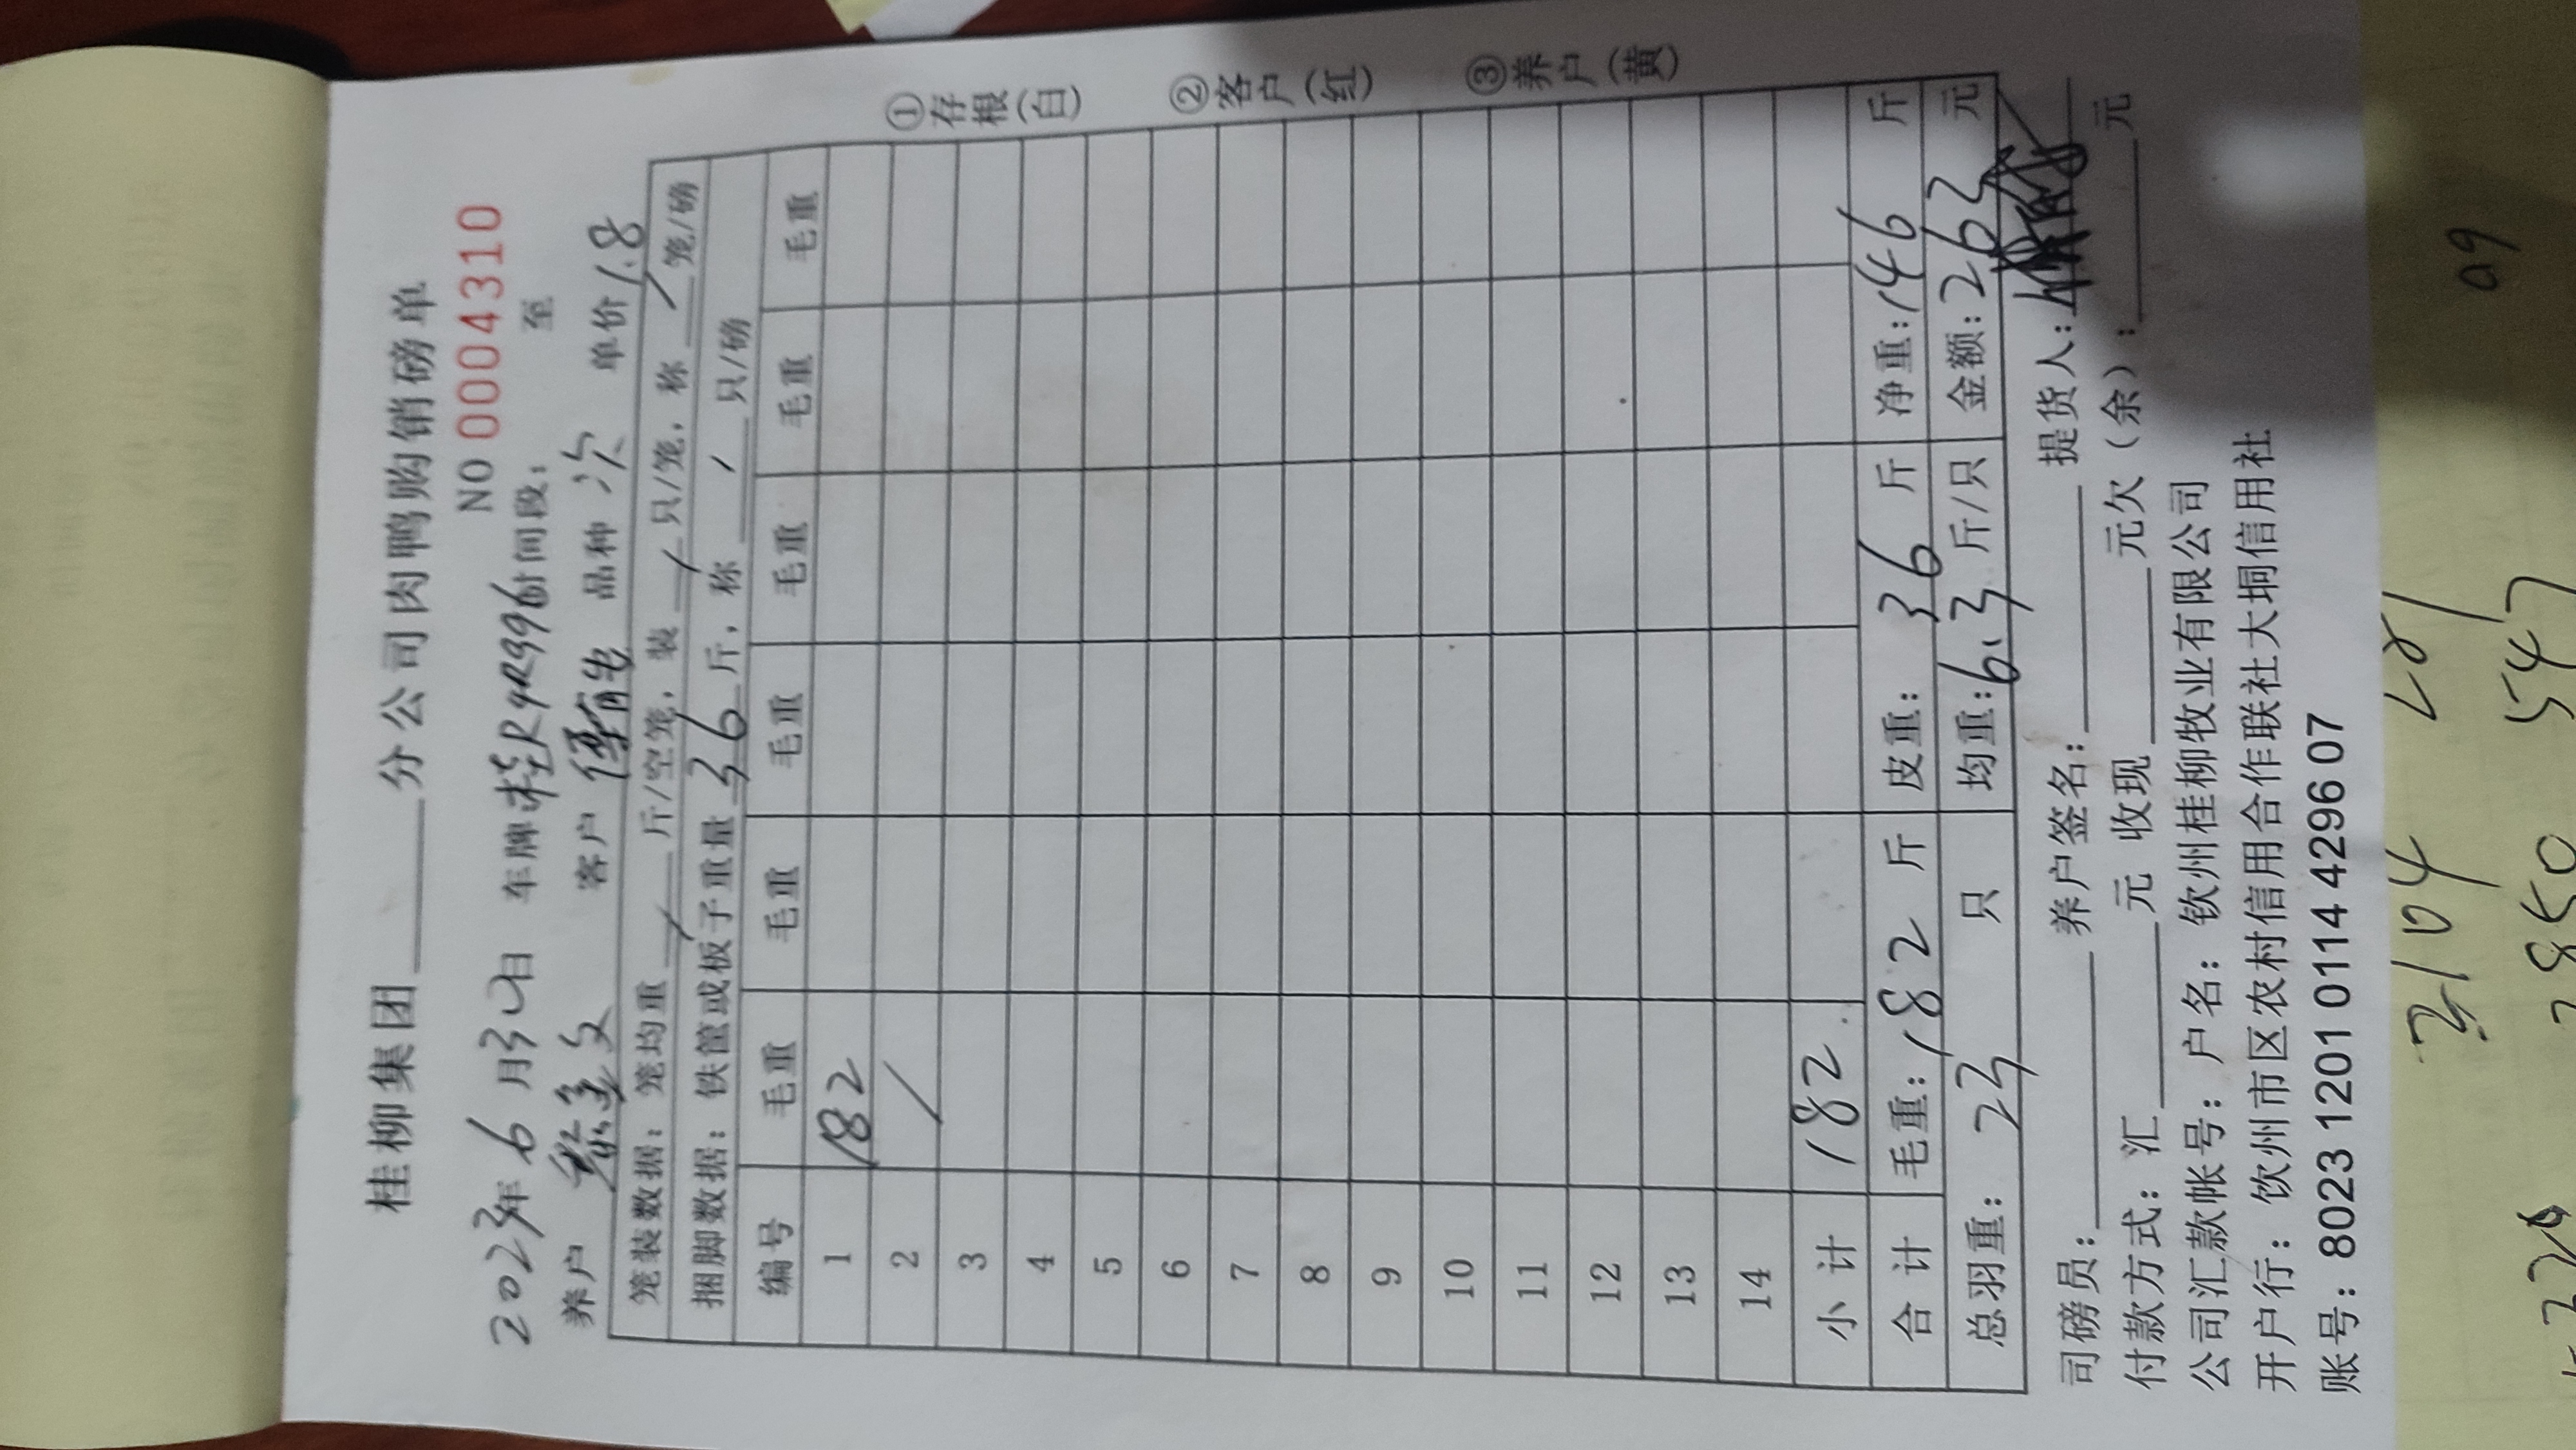 桂柳集团____分公司肉鸭购销磅单
NO 0004310
2023年 6 月30日 车牌桂R4R996时间段: 至
养户 客户 品种 次 单价 1.8
笼装数据: 笼均重 / 斤/空笼, 装 / 只/笼, 称 / 笼/磅
捆脚数据: 铁筐或板子重量 36 斤, 称 / 只/磅
编号 毛重 毛重 毛重 毛重 毛重 毛重
1 182
2 /
3
4
5
6
7
8
9
10
11
12
13
14
小计 182
合计 毛重: 182 斤 皮重: 36 斤 净重: 146 斤
总羽重: 23 只 均重: 6.3 斤/只 金额: 263 元
①存根(白) ②客户(红) ③养户(黄)
司磅员:____ 养户签名:____ 提货人:
付款方式: 汇____元 收现____元欠(余):____元
公司汇款帐号: 户名: 钦州桂柳牧业有限公司
开户行: 钦州市区农村信用合作联社大垌信用社
账号: 8023 1201 0114 4296 07
2104
547